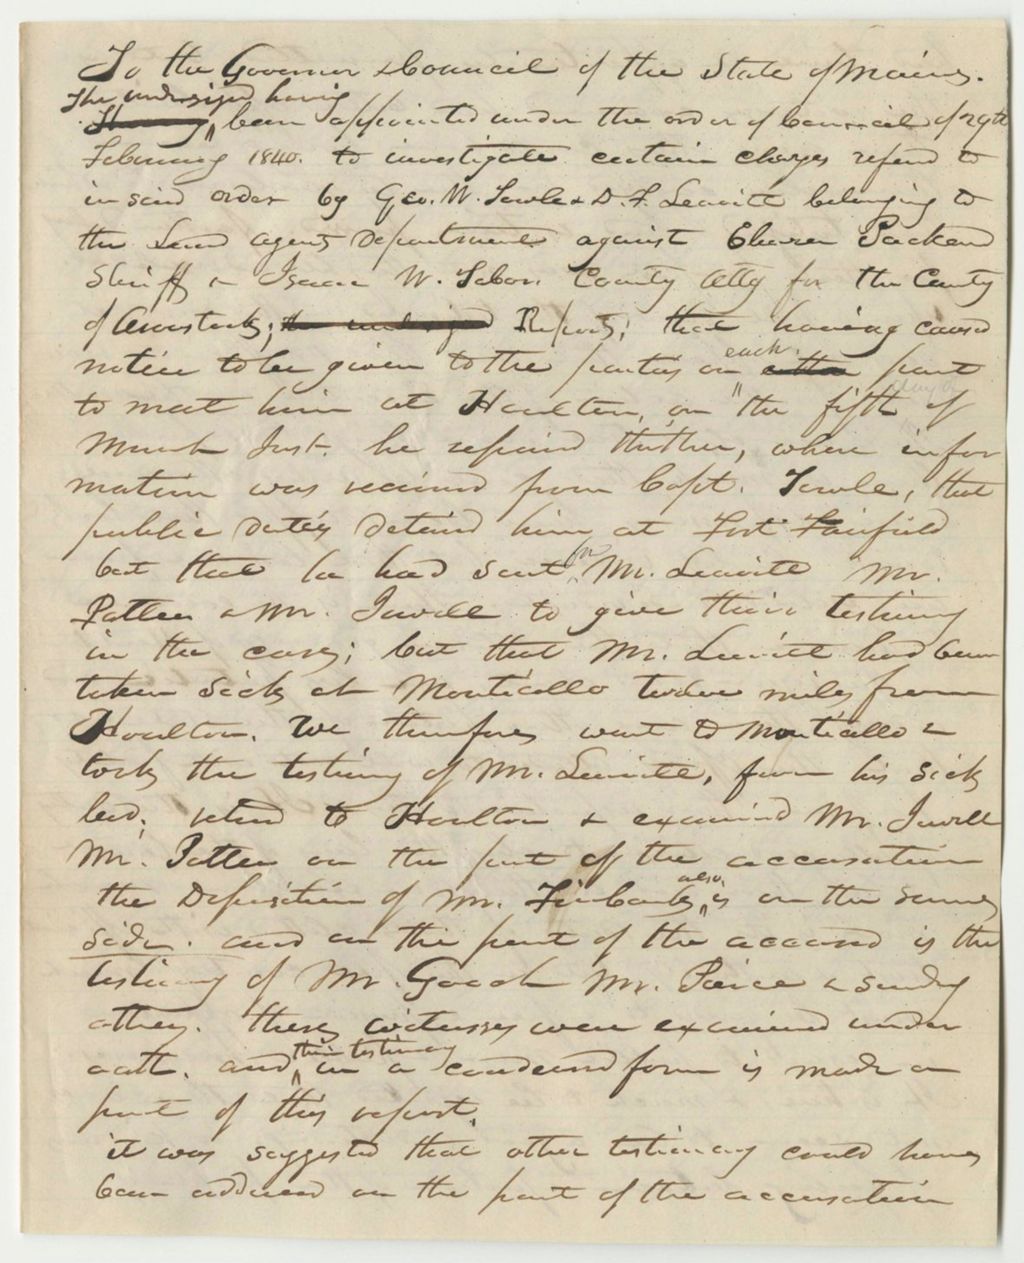 To the Governor & Council of the State of Maine.
The undersigned having
been appointed under the order of Council of 29th
February 1840. to investigate certain charges referd to
in said order by Geo. W. Towle & D. F. Leavitt belonging to
the Land agents Department against Packard
Sheriff & Isaac W. Tabor County Atty for the County
of Aroostook; the undersigned Reports; that having caused
notice to be given to the parties on each part
to meet him at Houlton, on the fifth of
March Inst. he repaird thither, where infor
mation was received from Capt. Towle, that
public duties detaind him at Fort Fairfield
but that he had sent for Mr. Leavitt Mr.
Patten & Mr. Jewell to give their testimony
in the case; but that Mr. Leavitt had been
taken sick at Monticello twelve miles from
Houlton. We therefore went to Monticello &
took the testimony of Mr. Leavitt, from his sick
bed. returnd to Houlton & examined Mr. Jewell
Mr. Patten on the part of the accusation
the Deposition of Mr. Fairbanks also is on the same
side. and on the part of the accused is the
testimony of Mr. Gooch Mr. Peirce & sundry
others. these witnesses were examined under
oath. and their testimony in a condensed form is made a
part of this report.
it was suggested that other testimony could have
been adduced on the part of the accusation